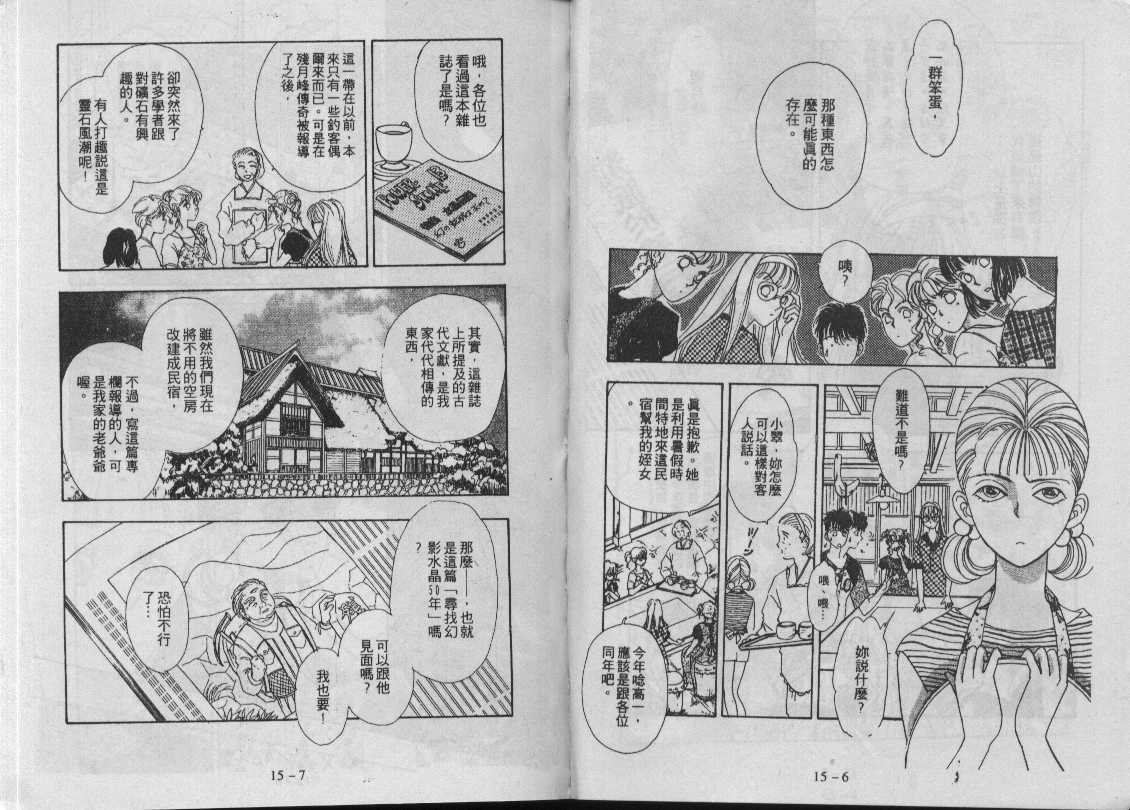 一群笨蛋，
那種東西怎
麼可能真的
存在。
咦？
難道不是嗎？
喂、喂…
妳說什麼？
小翠，妳怎麼
可以這樣對客
人說話。
真是抱歉。她
是利用暑假時
間特地來這民
宿幫我的姪女
。
今年唸高一，
應該是跟各位
同年吧。
15－6
哦，各位也
看過這本雜
誌了是嗎？
這一帶在以前，本
來只有一些釣客偶
爾來而已。可是在
殘月峰傳奇被報導
了之後，
卻突然來了
許多學者跟
對礦石有興
趣的人。
有人打趣說這是
靈石風潮呢！
其實，這雜誌
上所提及的古
代文獻，是我
家代代相傳的
東西，
雖然我們現在
將不用的空房
改建成民宿，
不過，寫這篇專
欄報導的人，可
是我家的老爺爺
喔。
那麼——，也就
是這篇「尋找幻
影水晶50年」嗎
？
可以跟他
見面嗎？
我也要！
恐怕不行
了…
15－7